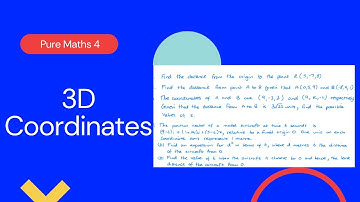 Pure Maths 4
3D
Coordinates
Find the distance from the origin to the point
Find the distance from point A to B given that A(0,3,9) and B
The coordinates of A and B are and respectively
Given that the distance from A to B is units, find the possible
values of
The position vector of a model aircraft at time t seconds is
relative to a fixed origin O. One unit on each
coordinate axis represents 1 metre.
(a) Find an expression for d² in terms of t, where d metres is the distance
of the aircraft from O.
(b) Find the value of t when the aircraft is closest to O and hence, the least
distance of the aircraft from O.